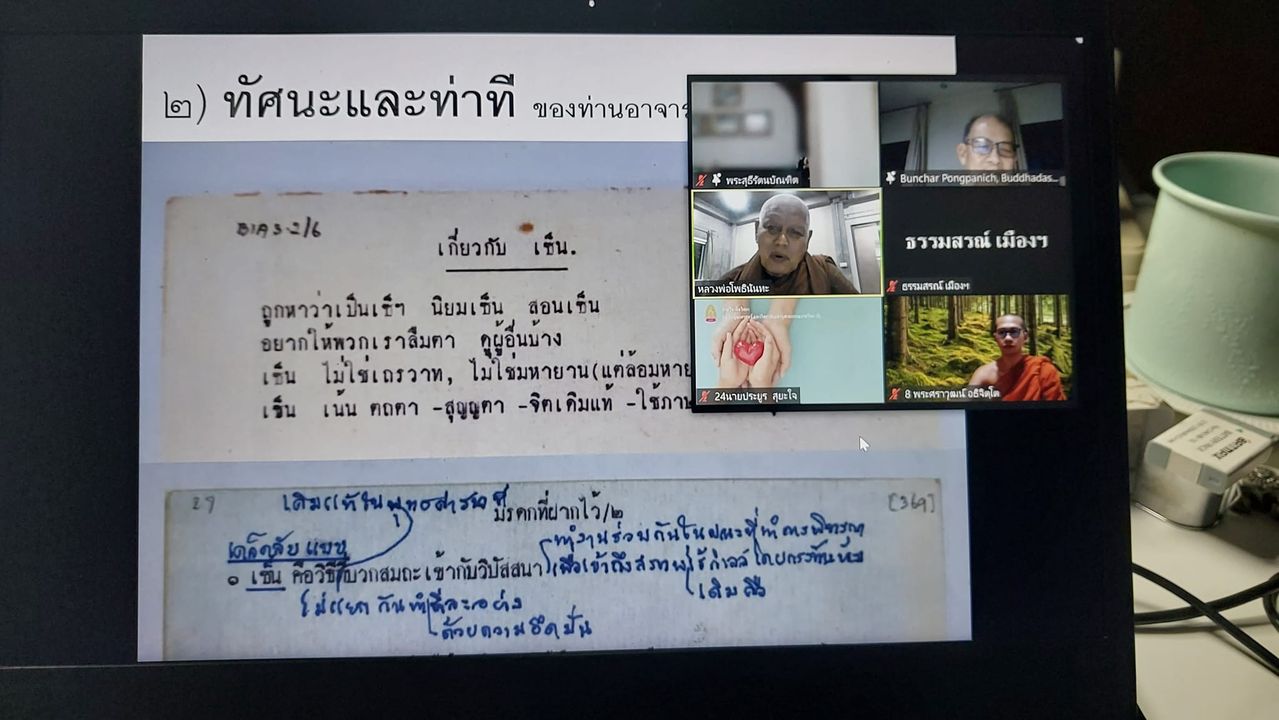 ๒) ทัศนะและท่าที ของท่านอาจาร
BIA 3.2/6
เกี่ยวกับ เซ็น.
ถูกหาว่าเป็นเซ็ฯ นิยมเซ็น สอนเซ็น
อยากให้พวกเราลืมตา ดูผู้อื่นบ้าง
เซ็น ไม่ใช่เถรวาท, ไม่ใช่มหายาน(แต่ล้อมหาย
เซ็น เน้น ตถตา -สุญญตา -จิตเดิมแท้ -ใช้ภาษ
พระสุธีรัตนบัณฑิต
Bunchar Pongpanich, Buddhadas...
หลวงพ่อโพธินันทะ
ธรรมสรณ์ เมืองฯ
ธรรมสรณ์ เมืองฯ
24นายประยูร สุยะใจ
8 พระศราวุฒน์ อธิจิตฺโต
เดิมแท้ในพุทธศาสนาที่
มรดกที่ฝากไว้/๒
[369]
เคล็ดลับ แบบ
ทำงานร่วมกันในขณะที่ทำการพิจารณา
๐ เซ็น คือวิธีที่บวกสมถะเข้ากับวิปัสสนา
เพื่อเข้าถึงสภาพ
ไม่แยกกันทำทีละอย่าง
ด้วยความยึดมั่น